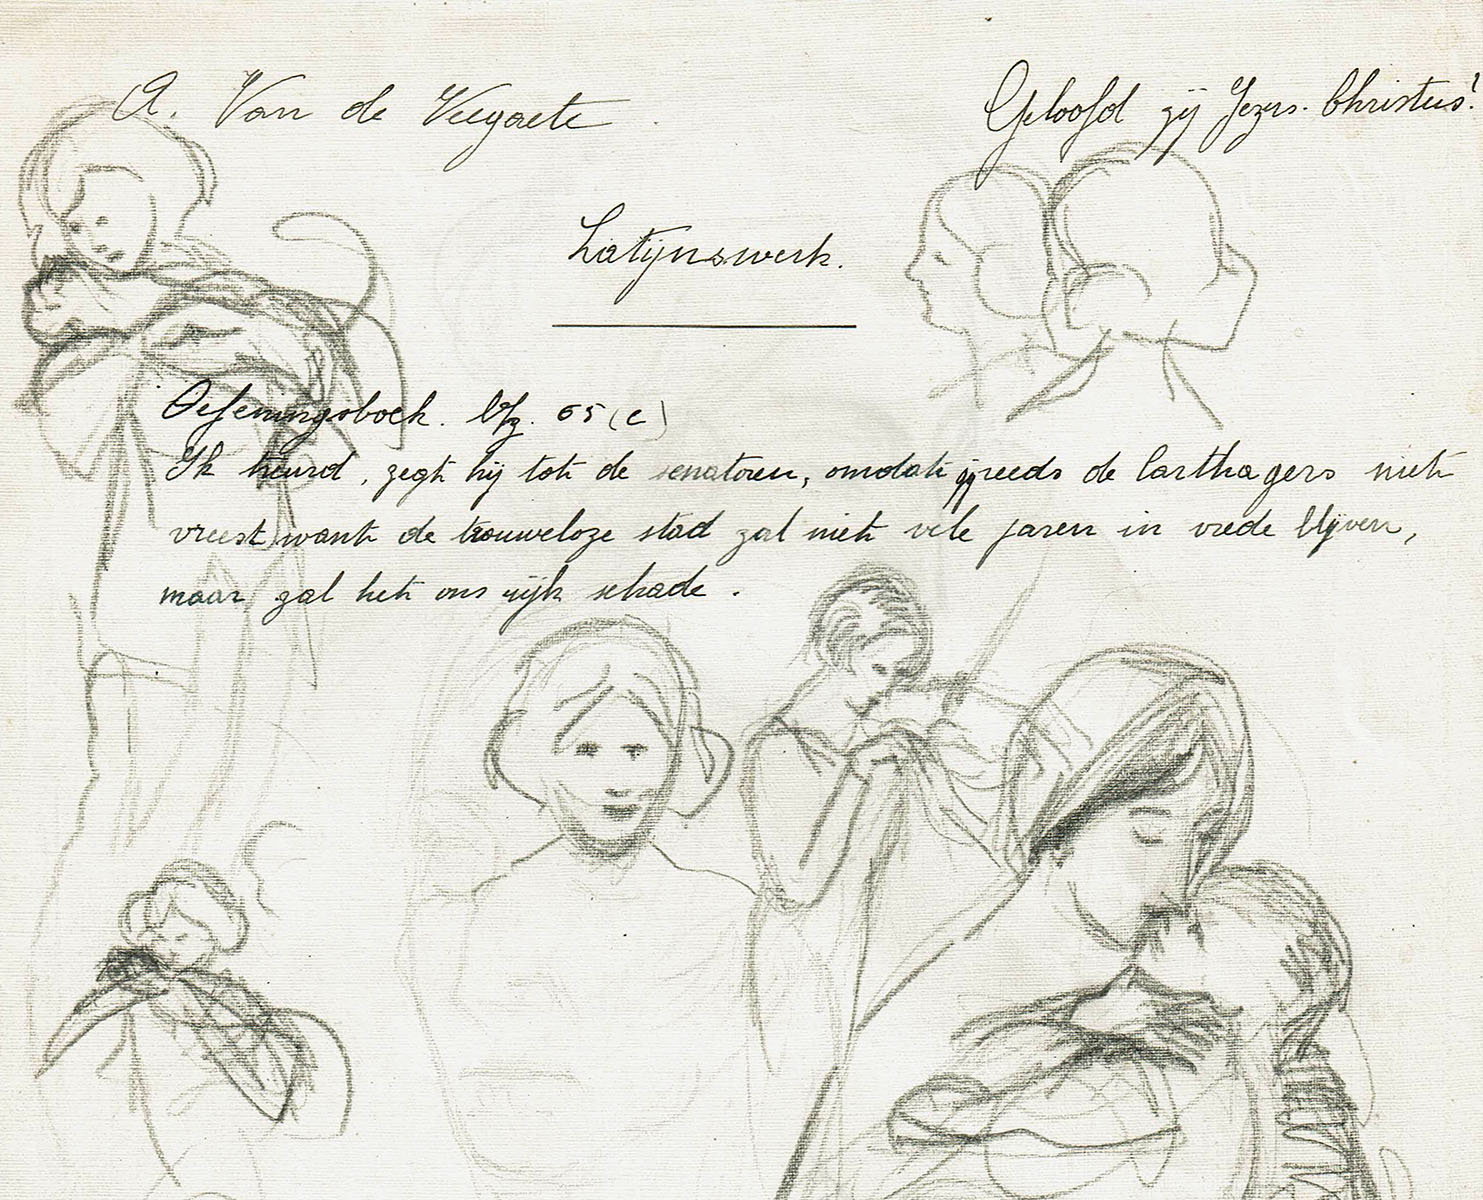 A. Van de Veegaete
Geloofd zij Jezus. Christus!
Latijnswerk.
Oefeningsboek. blz. 65 (c)
Ik heurd, zegt hij tot de senatoren, omdat gij reeds de Carthagers niet
vreest want de trouweloze stad zal niet vele jaren in vrede blijven,
maar zal het ons rijk schade.